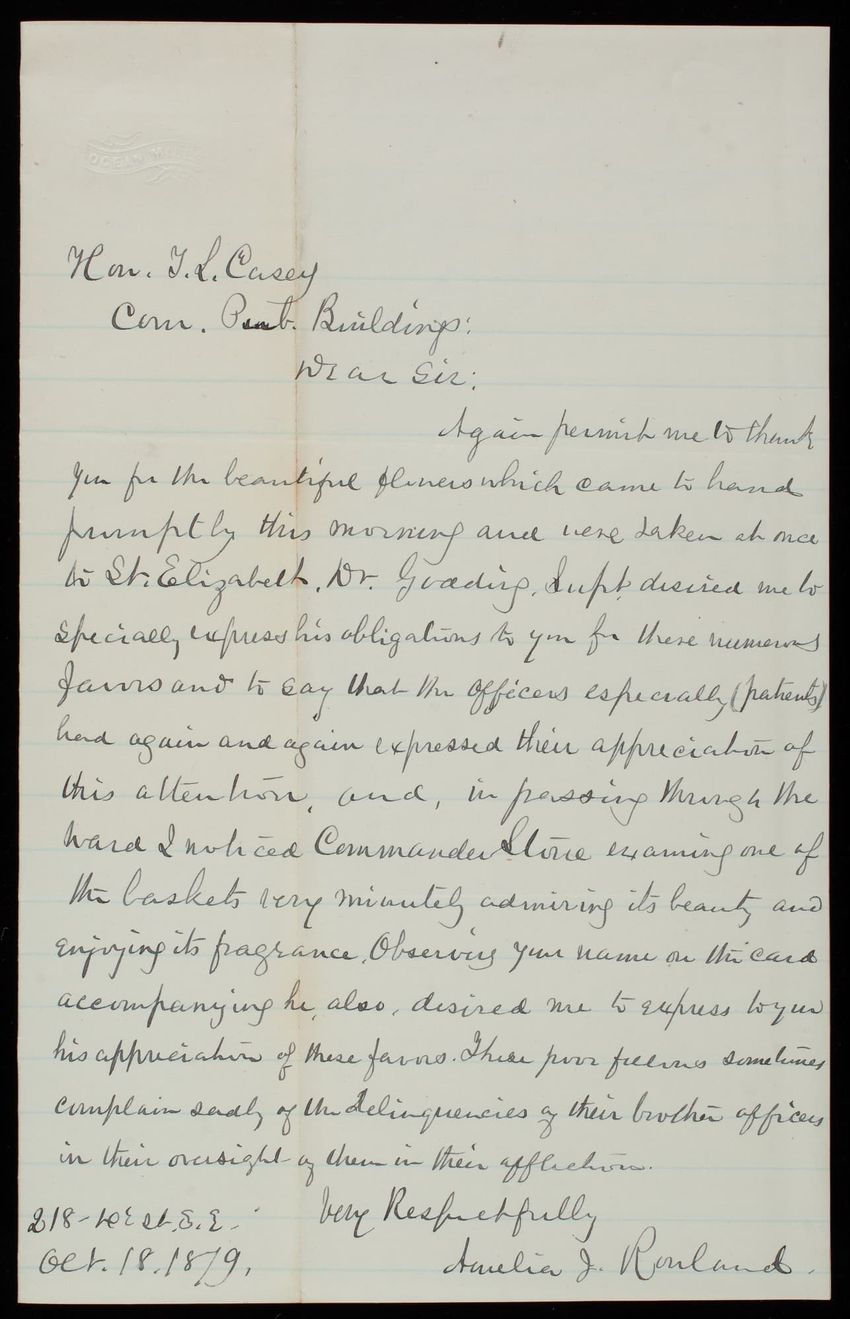 OCEAN MILLS
Hon. T. L. Casey
Com. Pub. Buildings:
Dear Sir:
Again permit me to thank
you for the beautiful flowers which came to hand
promptly this morning and were taken at once
to St. Elizabeth. Dr. Godding, Supt, desired me to
specially express his obligations to you for these numerous
favors and to say that the officers especially (patients)
had again and again expressed their appreciation of
this attention, and, in passing through the
ward I noticed Commander Stone examing one of
the baskets very minutely admiring its beauty and
enjoying its fragrance. Observing your name on the card
accompanying he, also, desired me to express to you
his appreciation of these favors. These poor fellows sometimes
complain sadly of the delinquencies of their brother officers
in their oversight of them in their affliction.
Very Respectfully
218- St. S.E.
Oct. 18. 1879.
Amelia J. Rowland.